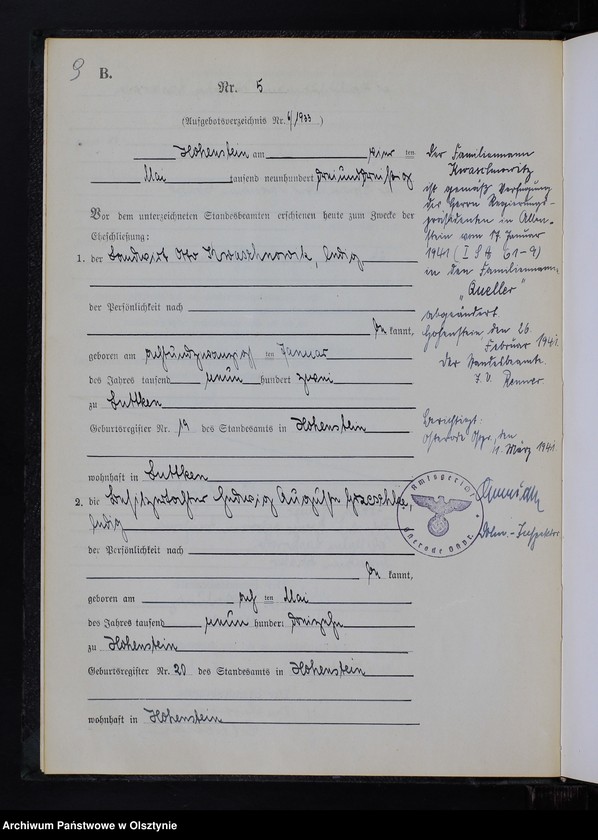 9
B.
Nr. 5
(Aufgebotsverzeichnis Nr. 6/1933)
Hohenstein am ten
Mai tausend neunhundert dreiunddreißig
Vor dem unterzeichneten Standesbeamten erschienen heute zum Zwecke der
Eheschließung:
1. der Landwirt Otto ledig
der Persönlichkeit nach
be kannt,
geboren am achtundzwanzigsten ten Januar
des Jahres tausend neun hundert zwei
zu Luttken
Geburtsregister Nr. des Standesamts in Hohenstein
wohnhaft in Luttken
2. die Besitzertochter Hedwig Auguste
ledig
der Persönlichkeit nach
be kannt,
geboren am ten Mai
des Jahres tausend neun hundert dreizehn
zu Hohenstein
Geburtsregister Nr. 20 des Standesamts in Hohenstein
wohnhaft in Hohenstein
Der Familienname
ist gemäß Verfügung
des Herrn Regierungs-
präsidenten in Allen-
stein vom 17. Januar
1941 (I
in den Familiennamen
„Queller"
abgeändert.
Hohenstein den 26.
Februar 1941.
Der Standesbeamte.
J. V. Renner
Berichtigt:
Osterode Ostpr., den
11. März 1941.
Amtsgericht
Osterode Ostpr.
-Inspektor
Archiwum Państwowe w Olsztynie